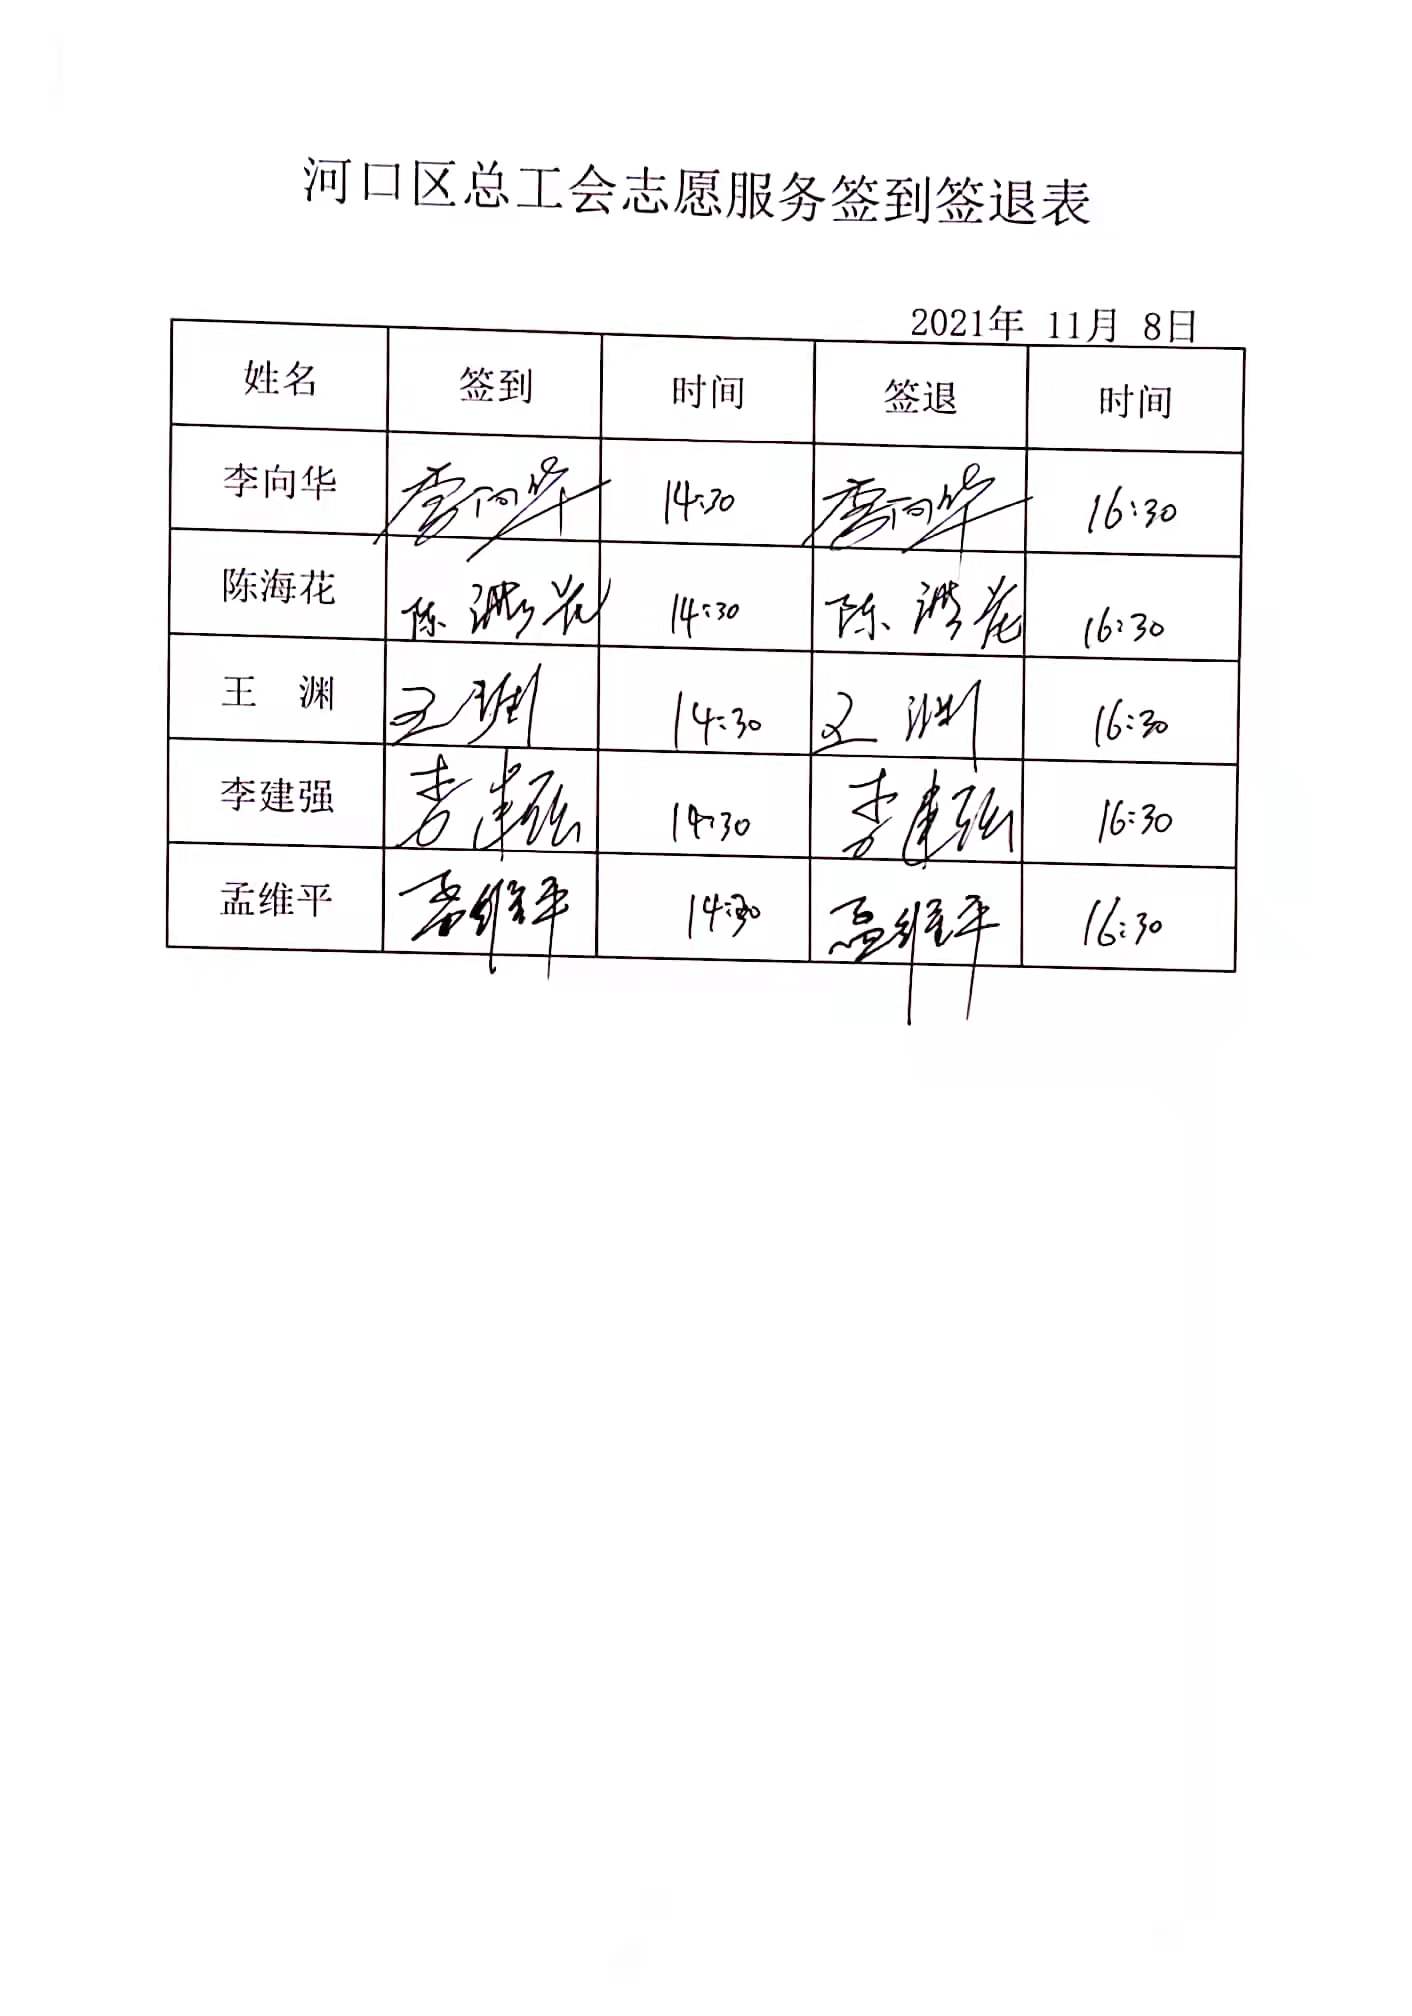 河口区总工会志愿服务签到签退表
2021年 11月 8日
姓名 签到 时间 签退 时间
李向华 李向华 14:30 李向华 16:30
陈海花 陈海花 14:30 陈海花 16:30
王 渊 王渊 14:30 王渊 16:30
李建强 李建强 14:30 李建强 16:30
孟维平 孟维平 14:30 孟维平 16:30